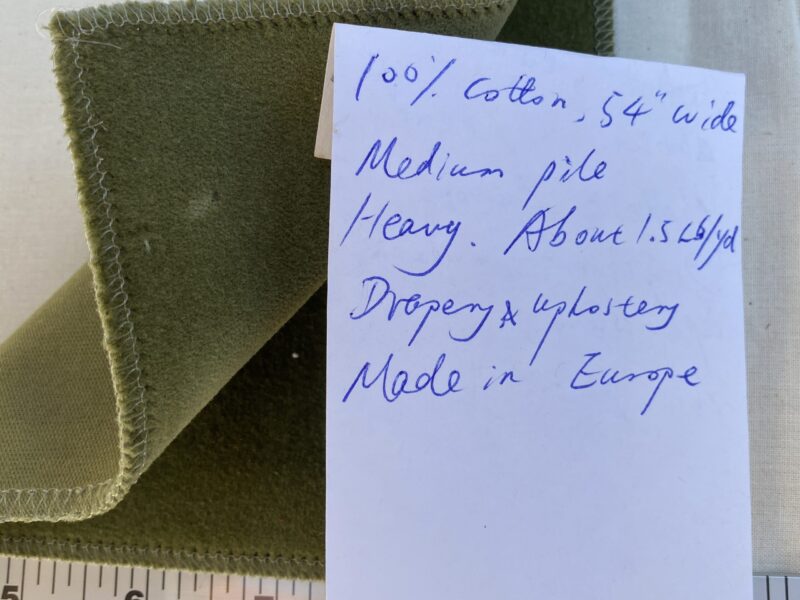 100% Cotton, 54" wide
Medium pile
Heavy. About 1.5 Lb/yd
Drapery & uphostery
Made in Europe
5 6 7